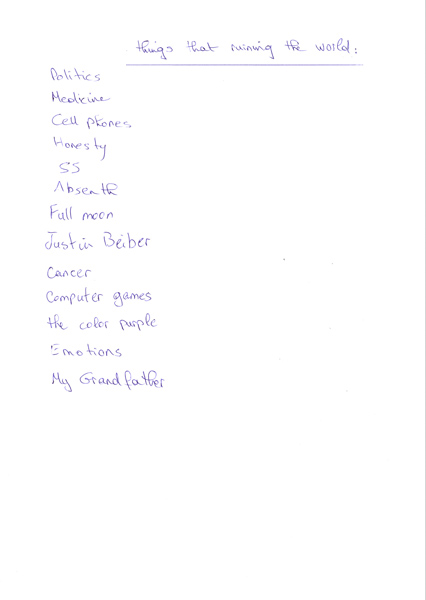 things that ruining the world:
Politics
Medicine
Cell phones
Honesty
SS
Absenth
Full moon
Justin Beiber
Cancer
Computer games
the color purple
Emotions
My Grandfather